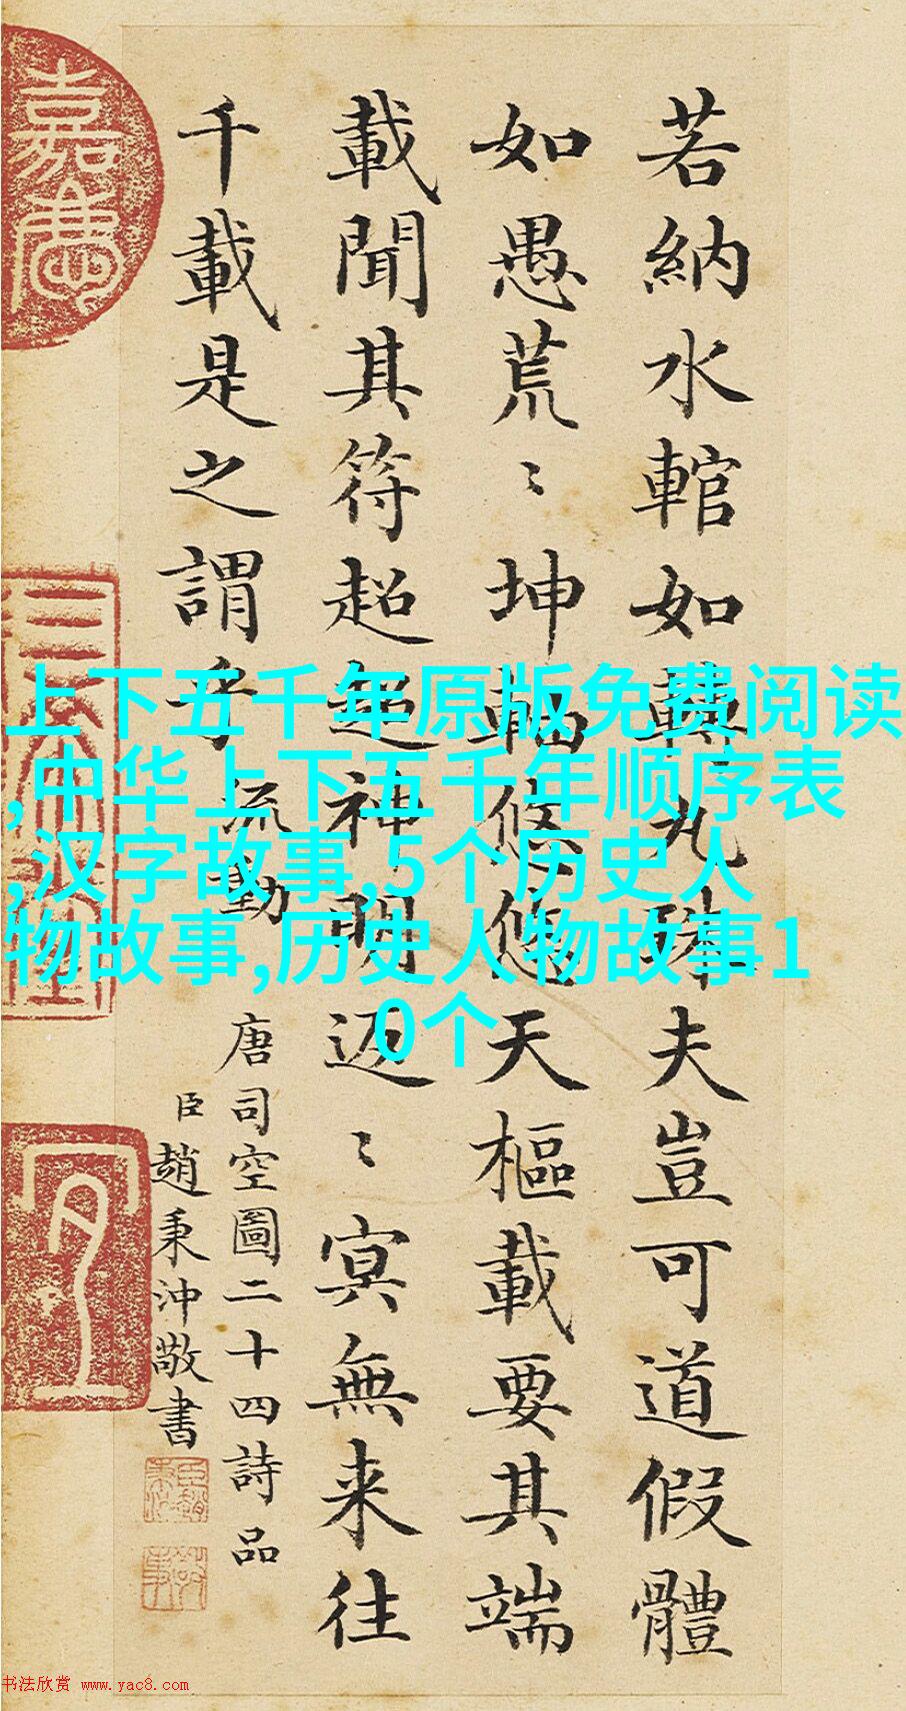 若納水輨如轉丸珠夫豈可道假體
如愚荒〻坤軸悠悠天樞載要其端
載聞其符超超神明返〻冥無来往
千載是之謂乎
流動
唐司空圖二十四詩品
臣趙秉沖敬書
嘉慶
上下五千年原版免费阅读
,中华上下五千年顺序表
,汉字故事,5个历史人
物故事,历史人物故事1
0个
书法欣赏 www.yac8.com